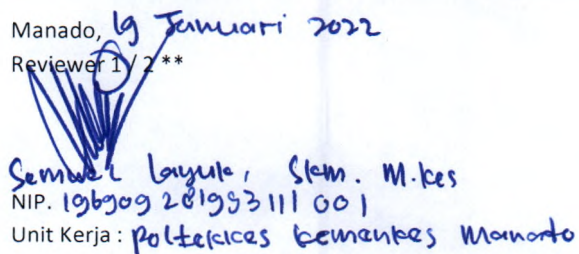 Manado, 19 Januari 2022
Reviewer 1 / 2 **
Semuel Layuk, SKM. M.Kes
NIP. 196909281993111001
Unit Kerja : Poltekkes Kemenkes Manado